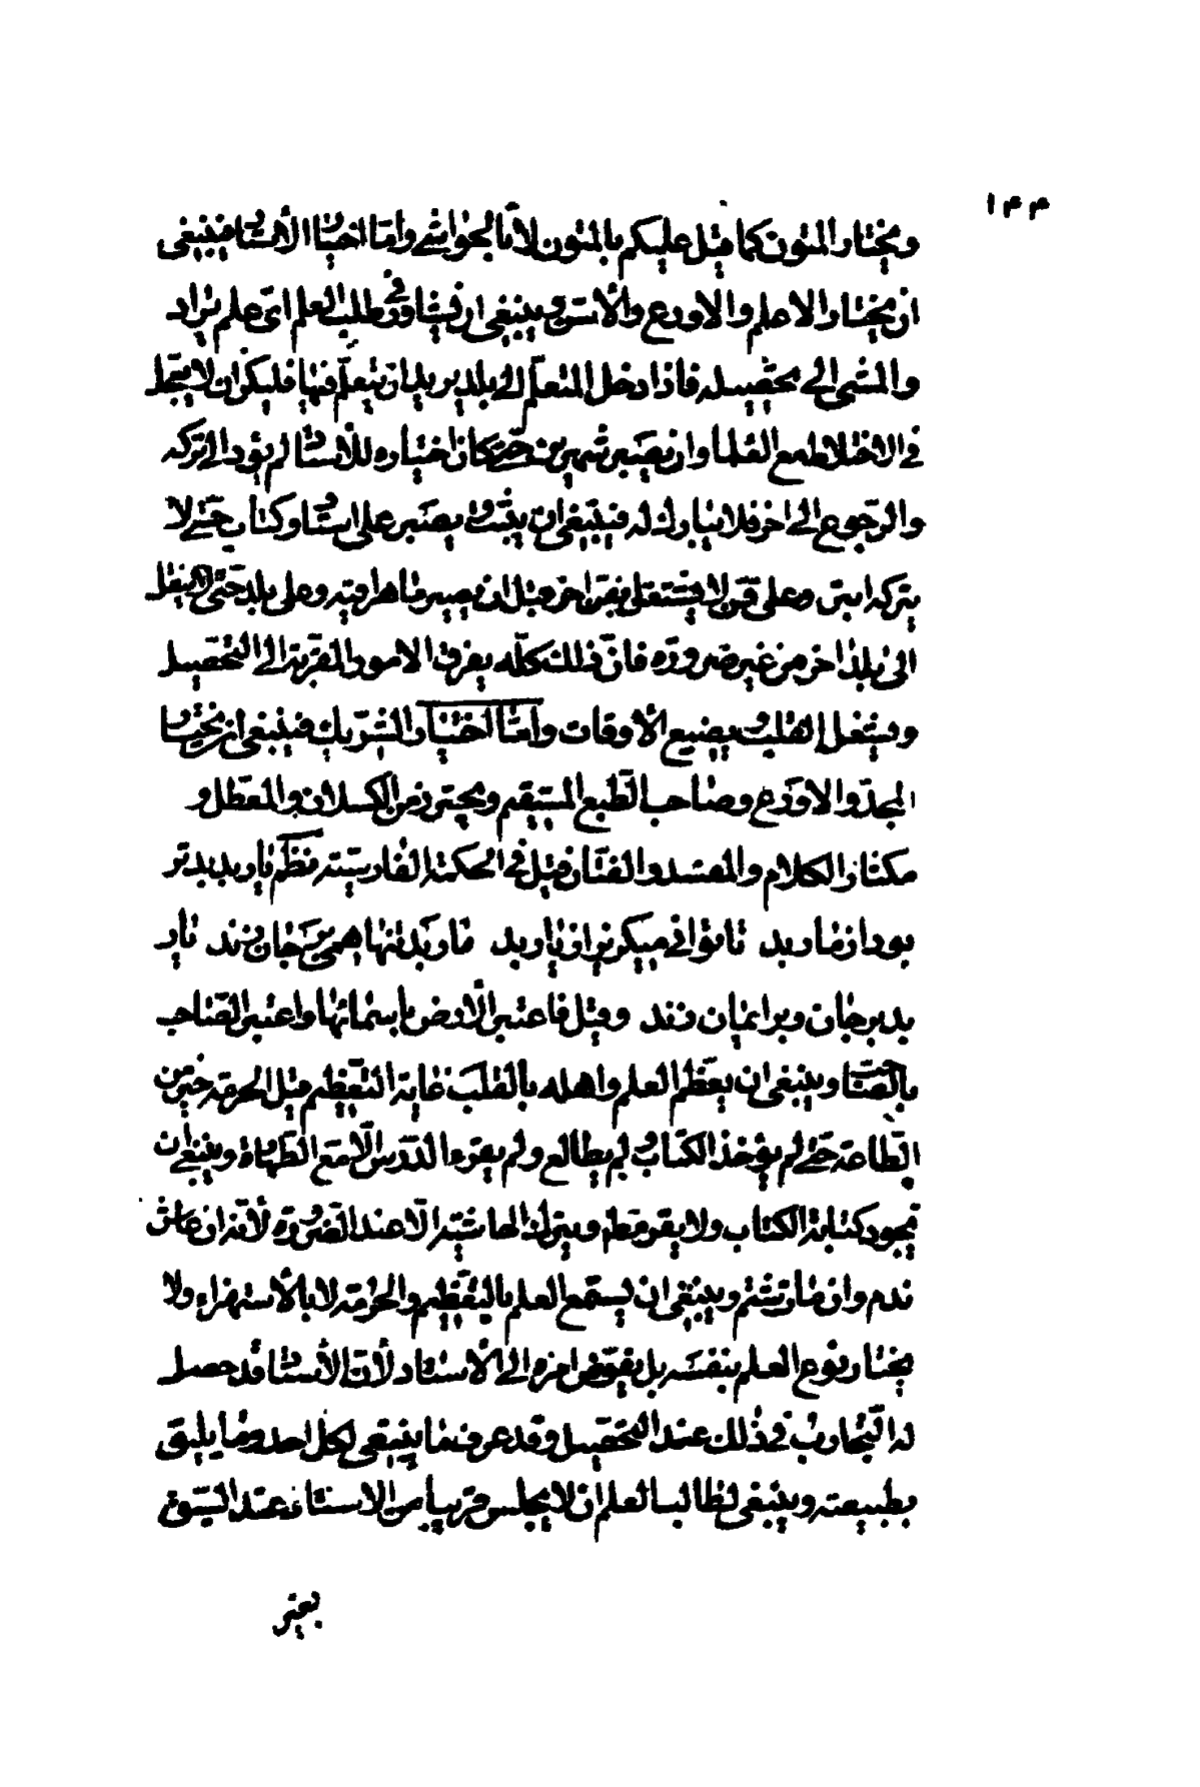 ١٤٤
ويختار المتون كما قيل عليكم بالمتون لا بالحواشي وامّا اختيار الأستاد فينبغي
ان يختار الاعلم والاورع والأسنّ وينبغي ان يشاور في طلب العلم ايّ علم يراد
والمشي الى تحصيله فاذا دخل المتعلّم الى بلد يريد ان يتعلّم فيها فليكن ان لا يتعجل
في الاختلاط مع العلماء وان يصبر شهرين حتى كان اختياره للأستاد لم يؤد الى تركه
والرجوع الى اخر فلا يبارك له فينبغي ان يثبت ويصبر على استاد وكتاب حتى لا
يتركه ابتر وعلى فن لا يشتغل بفن اخر قبل ان يصير ماهرا فيه وعلى بلد حتى لا ينتقل
الى بلد اخر من غير ضرورة فانّ ذلك كلّه يفرق الامور المقربة الى التحصيل
ويشغل القلب ويضيع الأوقات وامّا اختيار الشريك فينبغي ان يختار
المجدّ والاورع وصاحب الطّبع المستقيم ويحترز من الكسلان والمعطل و
مكثار الكلام والمفسد والفتّان قيل في الحكمة الفارسيّة نظم يار بد بدتر
بود از مار بد تا توانى ميكريز از يار بد مار بد تنها همى بر جان زند يار
بد بر جان وبر ايمان زند وقيل فاعتبر الأرض باسمائها واعتبر الصّاحب
بالصّاحب وينبغي ان يعظّم العلم واهله بالقلب غاية التّعظيم قيل الحرمة خير من
الطّاعة حتى لم يؤخذ الكتاب ولم يطالع ولم يقرء الدّرس الّا مع الطّهارة وينبغي ان
يجود كتابة الكتاب ولا يقرمط ويترك الحاشية الّا عند الضّرورة لأنّه ان عاش
ندم وان مات شتم وينبغي ان يستمع العلم بالتّعظيم والحرمة لا بالأستهزاء ولا
يختار نوع العلم بنفسه بل يفوّض امره الى الأستاد لأنّ الأستاد قد حصل
له التّجارب في ذلك عند التّحصيل وقد عرف ما ينبغي لكل احد وما يليق
بطبيعته وينبغي لطالب العلم ان لا يجلس قريبا من الاستاد عند السّبق
بغير